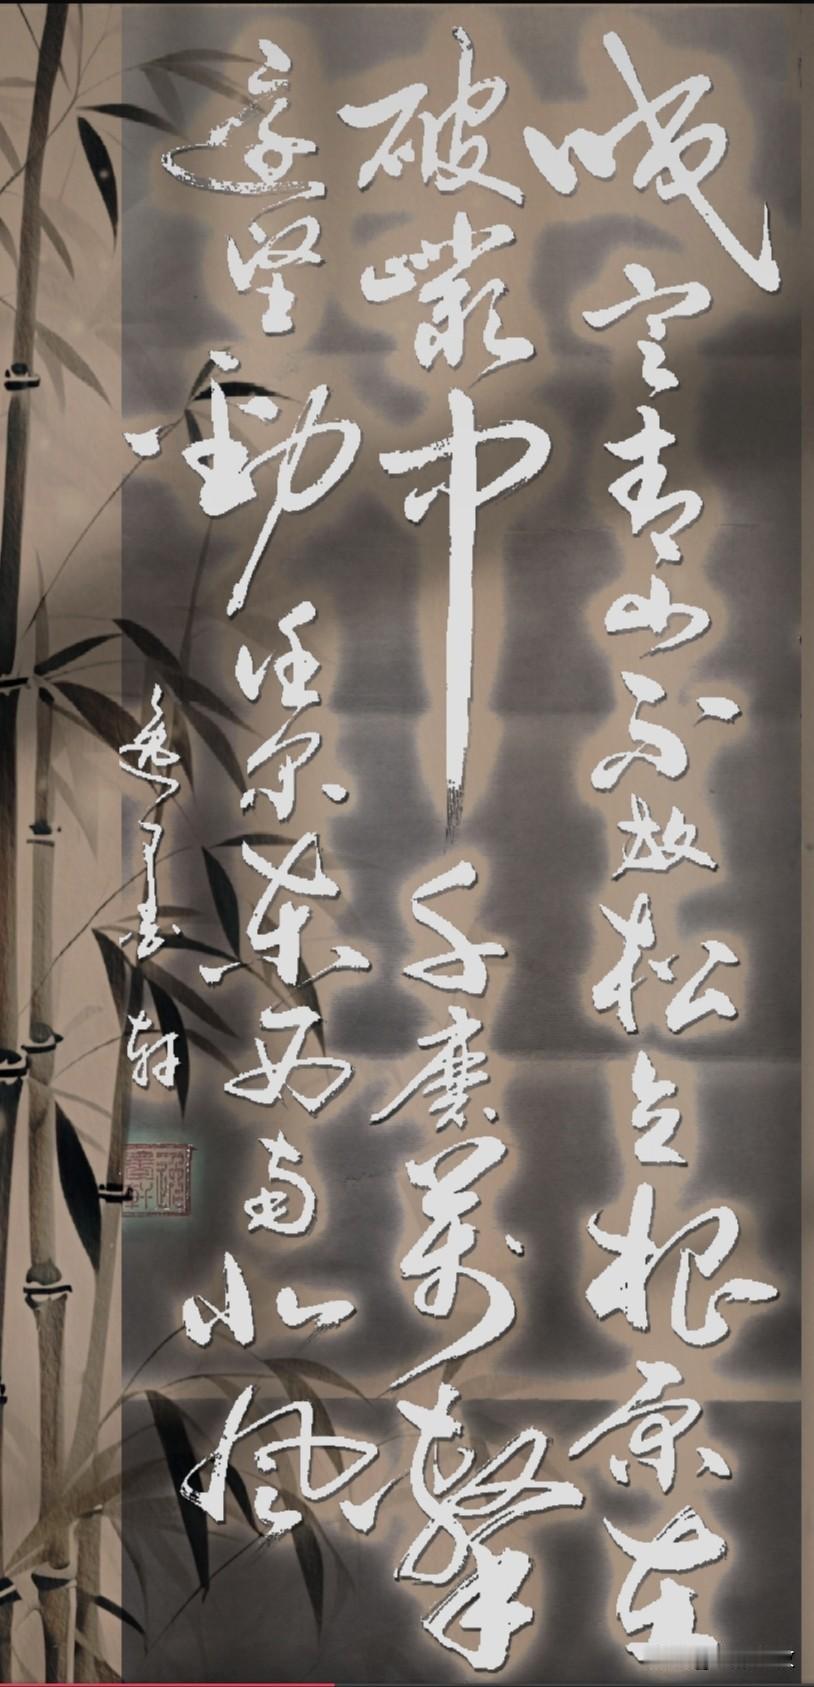 咬定青山不放松立根原在
破巖中千磨萬擊
还坚勁任尔东西南北风
逸墨轩